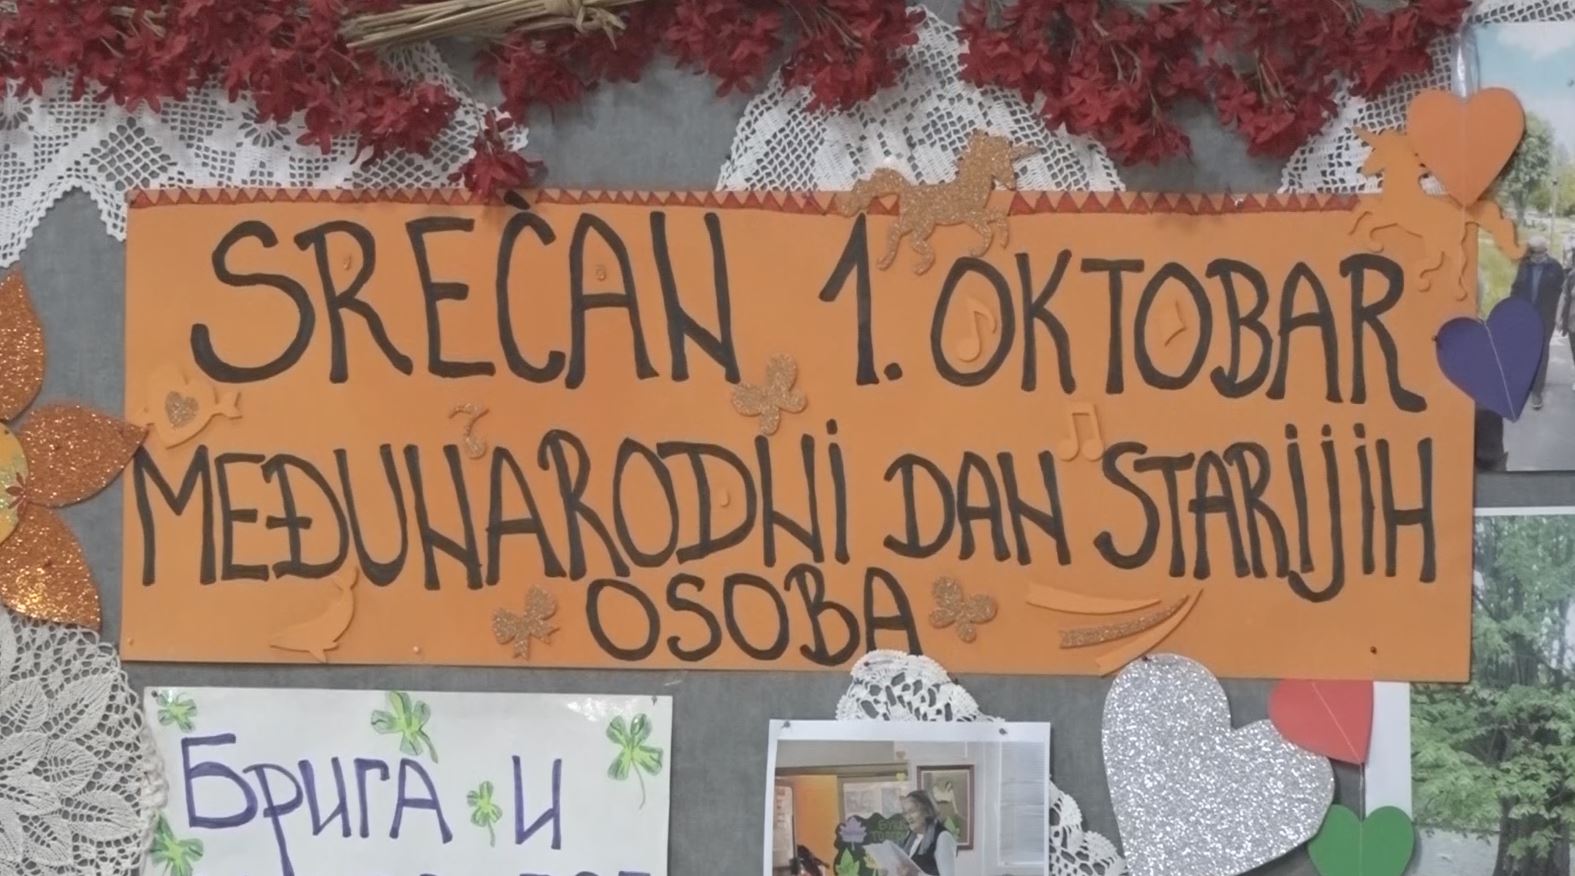 SREĆAN 1. OKTOBAR
MEĐUNARODNI DAN STARIJIH
OSOBA
Брига и